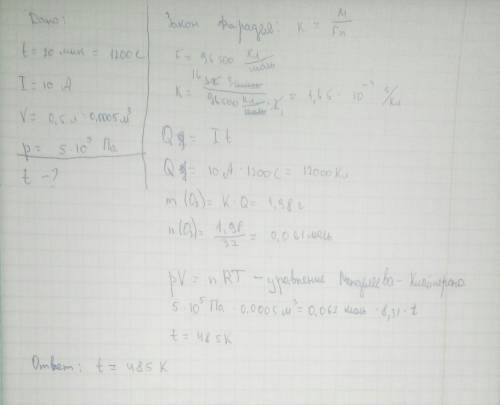 Дано:
t = 20 мин = 1200 с
I = 10 А
V = 0,5 л 0,0005 м³
p = 5·10⁵ Па
t - ?
Закон Фарадея: K = M / Fn
F = 96500 Кл/моль
K = 16 / 96500 Кл/моль = 1,65 · 10⁻⁴ г/Кл
Q = It
Q = 10 А · 1200 с = 12000 Кл
m(O₂) = K · Q = 1,98 г
n(O₂) = 1,98 / 32 = 0,062 моль
pV = nRT - уравнение Менделеева-Клайперона
5 · 10⁵ Па · 0,0005 м³ = 0,062 моль · 8,31 · t
t = 485 K
Ответ: t = 485 K